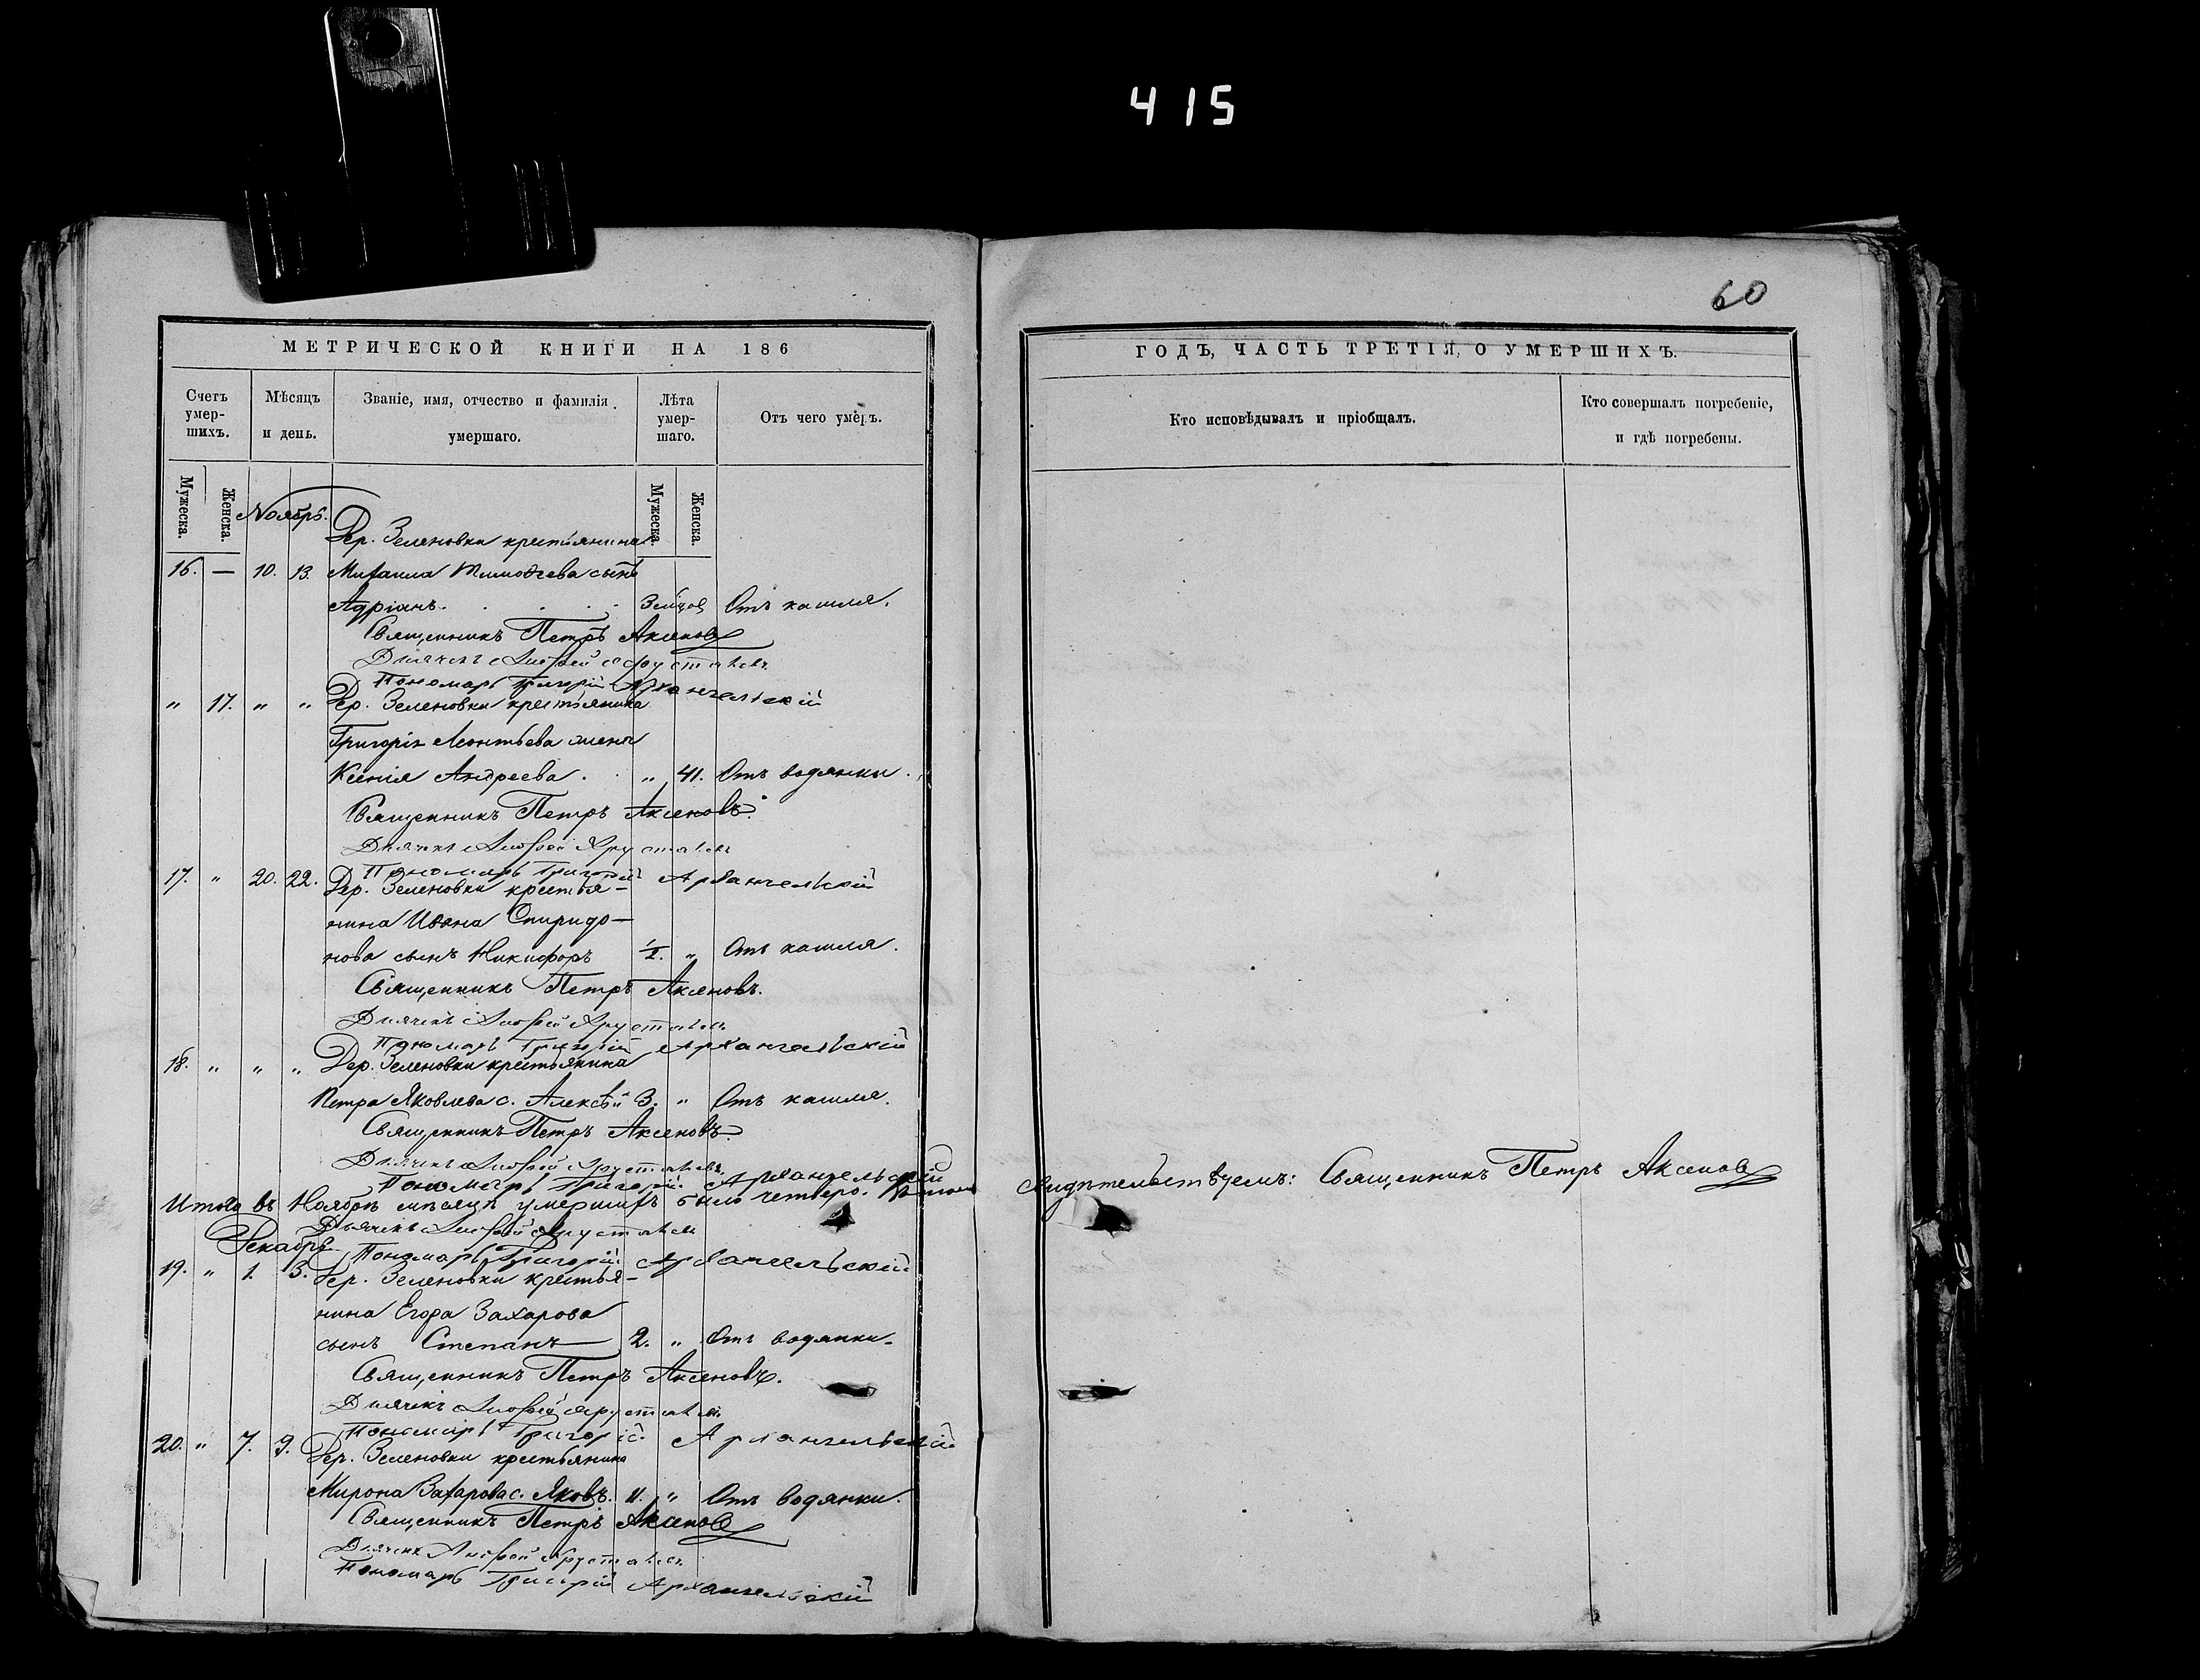 415
60
МЕТРИЧЕСКОЙ КНИГИ НА 186
ГОДЪ, ЧАСТЬ ТРЕТІЯ, О УМЕРШИХЪ.
Счетъ умер-шихъ.
Мѣсяцъ и день.
Званіе, имя, отчество и фамилія умершаго.
Лѣта умер-шаго.
Отъ чего умеръ.
Кто исповѣдывалъ и пріобщалъ.
Кто совершалъ погребеніе, и гдѣ погребены.
Мужеска. Женска. Мужеска. Женска.
Ноябрь.
Дер. Зеленовки крестьянина
16. — 10. 13. Михаила Тимофеева сынъ
Адріанъ. Отъ кашля.
Священникъ Петръ Аксеновъ
Дьячекъ
Пономарь Григорій Архангельскій
" 17. " " Дер. Зеленовки крестьянина
Григорія Леонтьева жена
Ксенія Андреева. " 41. Отъ водянки.
Священникъ Петръ Аксеновъ.
Дьячекъ
Пономарь Григорій Архангельскій
17. " 20. 22. Дер. Зеленовки крестья-
нина Ивана Спиридо-
нова сынъ Никифоръ 1/2. " Отъ кашля.
Священникъ Петръ Аксеновъ.
Дьячекъ
Пономарь Григорій Архангельскій
18. " " " Дер. Зеленовки крестьянина
Петра Яковлева с. Алексѣй 3. " Отъ кашля.
Священникъ Петръ Аксеновъ.
Дьячекъ
Пономарь Григорій Архангельскій
Итого въ Ноябрѣ мѣсяцѣ умершихъ было четверо. свидѣтельствуемъ: Священникъ Петръ Аксеновъ
Дьячекъ
Декабрь
Пономарь Григорій Архангельскій
19. " 1. 3. Дер. Зеленовки крестья-
нина Егора Захарова
сынъ Степанъ 2. " Отъ водянки.
Священникъ Петръ Аксеновъ.
Дьячекъ
Пономарь Григорій Архангельскій
20. " 7. 9. Дер. Зеленовки крестьянина
Мирона Захарова с. Яковъ. 11. " Отъ водянки.
Священникъ Петръ Аксеновъ
Дьячекъ
Пономарь Григорій Архангельскій